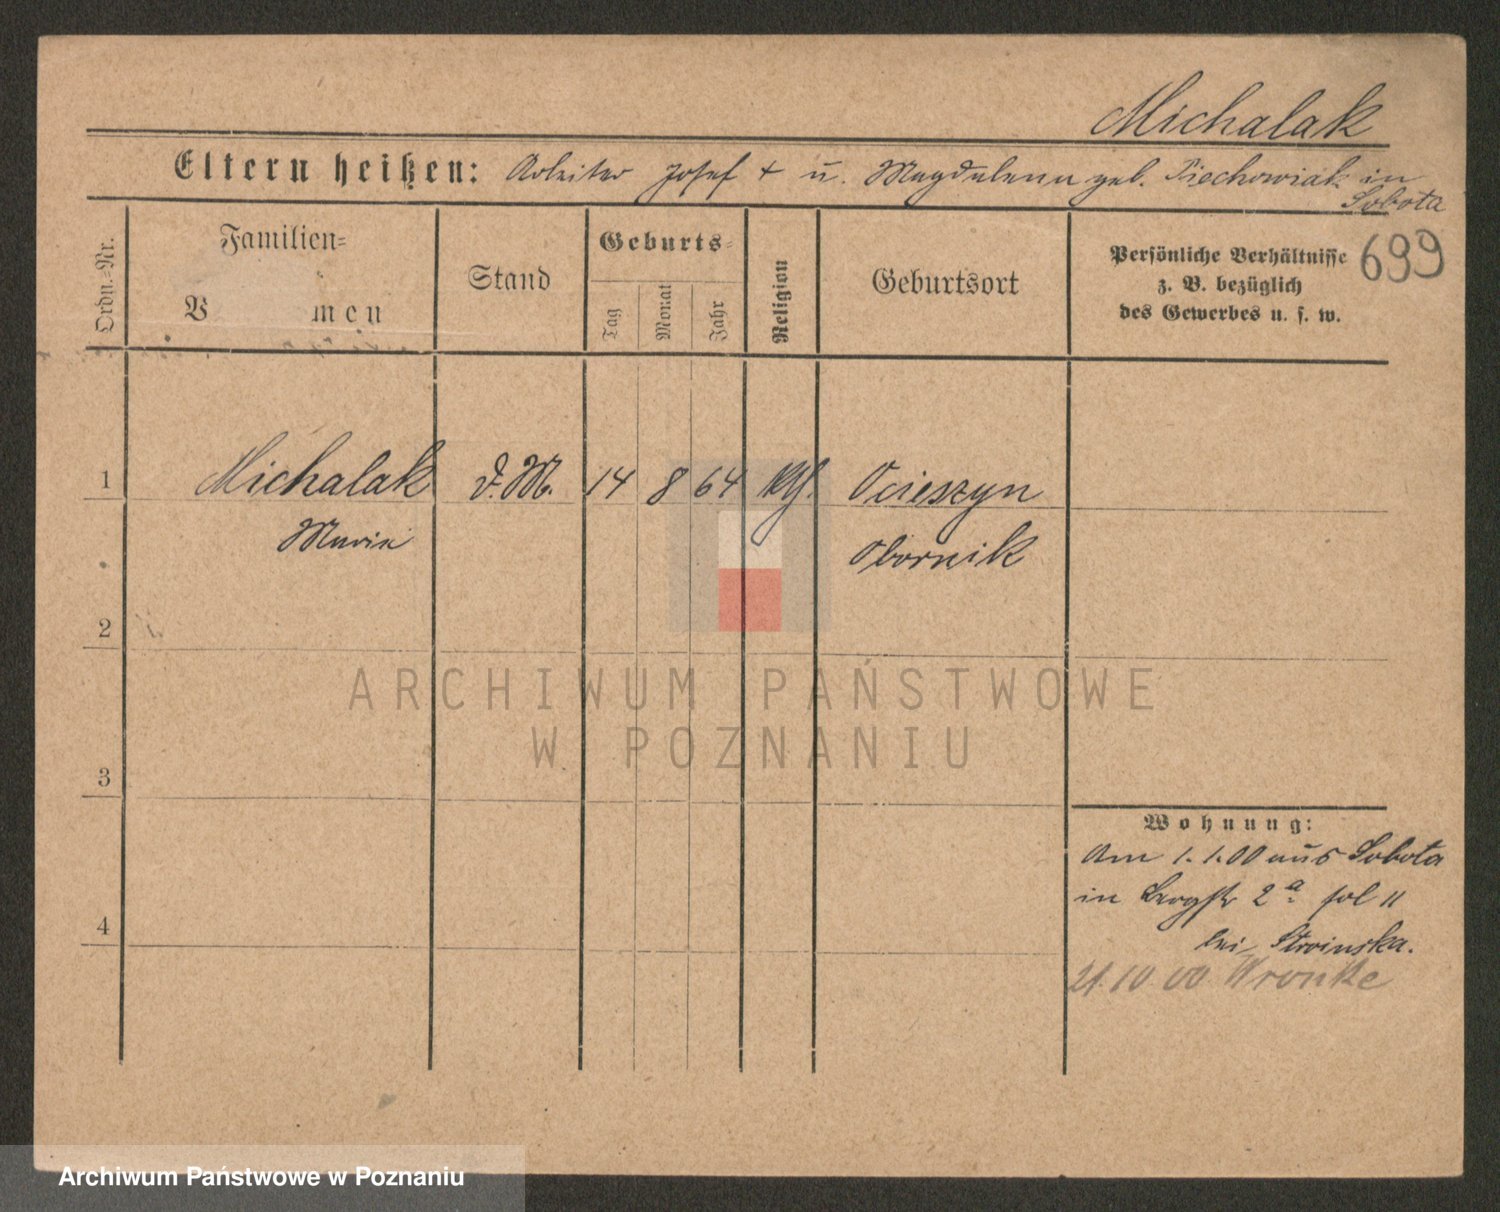 Michalak
Eltern heißen: Arbeiter Josef + u. Magdalena geb. Piechowiak in
Sobota
Ordn.-Nr.
Familien-
V men
Stand
Geburts-
Tag
Monat
Jahr
Religion
Geburtsort
Persönliche Verhältnisse
z. B. bezüglich
des Gewerbes u. s. w.
699
1 Michalak D.M. 14 8 64 kth. Ocieszyn
Maria Obornik
2
ARCHIWUM PAŃSTWOWE
W POZNANIU
3
Wohnung:
Am 1.1.00 aus Sobota
in Bergstr 2a. fol 11
bei Stroinska.
4
21.10 00 Wronke
Archiwum Państwowe w Poznaniu